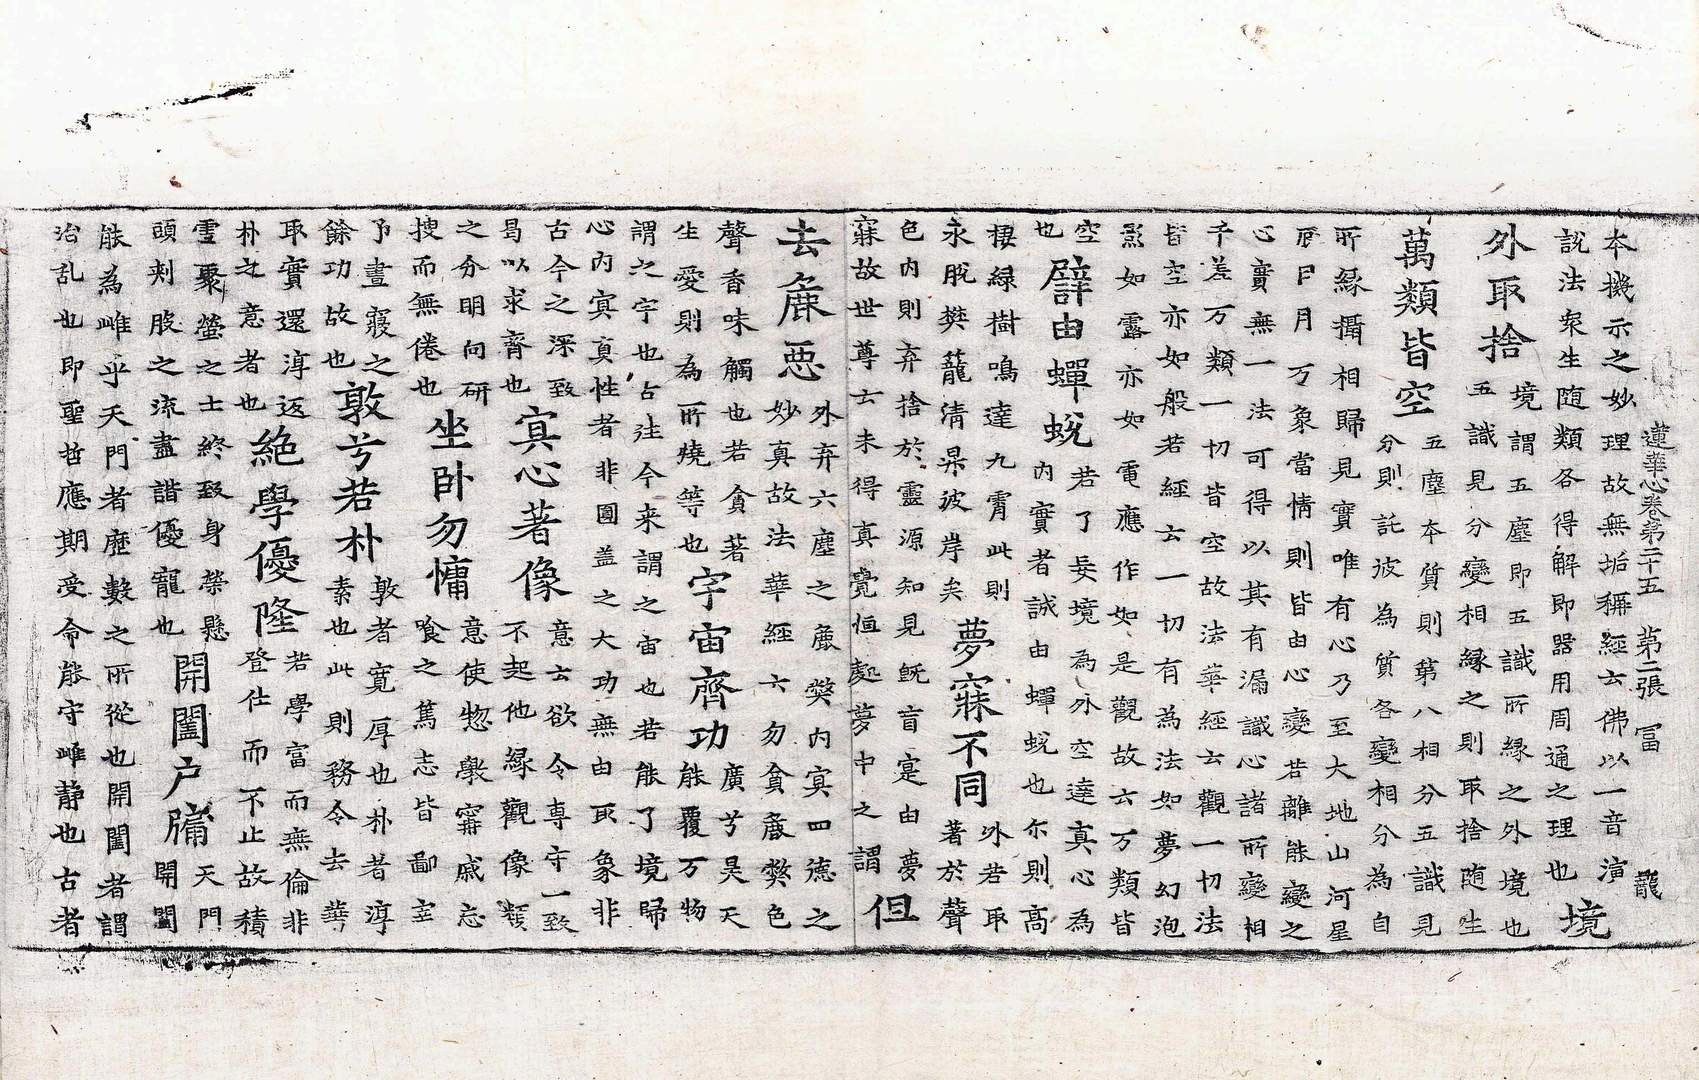 蓮華心卷第二十五 第二張 冨 龍
本機示之妙理故無垢稱經云佛以一音演
說法衆生随類各得解即器用周通之理也 境
外取捨 境謂五塵即五識所縁之外境也
五識見分變相縁之則取捨随生
萬類皆空 五塵本質則第八相分五識見
分則託彼為質各變相分為自
所縁攝相歸見實唯有心乃至大地山河星
辰日月万象當情則皆由心變若離能變之
心實無一法可得以其有漏識心諸所變相
千差万類一切皆空故法華經云觀一切法
皆空亦如般若經云一切有為法如夢幻泡
影如露亦如電應作如是觀故云万類皆
空
也 譬由蟬蛻 若了妄境為外空達真心為
内實者誠由蟬蛻也尔則高
棲緑樹鳴達九霄此則
永脫樊籠清昇彼岸矣 夢寐不同 外若取
著於聲
色内則弃捨於靈源知見旣盲寔由夢
寐故世尊云未得真覺恒處夢中之謂 但
去麁惡 外弃六塵之麁獘内冥四德之
妙真故法華經云勿貪麁獘色
聲香味觸也若貪著
生愛則為所燒等也 宇宙齊功 廣兮昊天
能覆万物
謂之宇也古往今来謂之宙也若能了境歸
心内冥真性者非圓盖之大功無由取象非
古今之深致
曷以求齊也 冥心著像 意云欲令專守一致
不起他縁觀像類
之分明向研
搜而無倦也 坐卧勿慵 意使惣斅甯戚忘
飡之篤志皆鄙宰
予晝寢之
餘功故也 敦兮若朴 敦者寬厚也朴者淳
素也此則務令去華
取實還淳返
朴之意者也 絶學優隆 若學富而無倫非
登仕而不止故積
雪聚螢之士終致身榮懸
頭刺股之流盡諧優寵也 開闔户牖 天門
開闔
能為雌乎天門者歴數之所從也開闔者謂
治乱也即聖哲應期受命能守雌静也古者